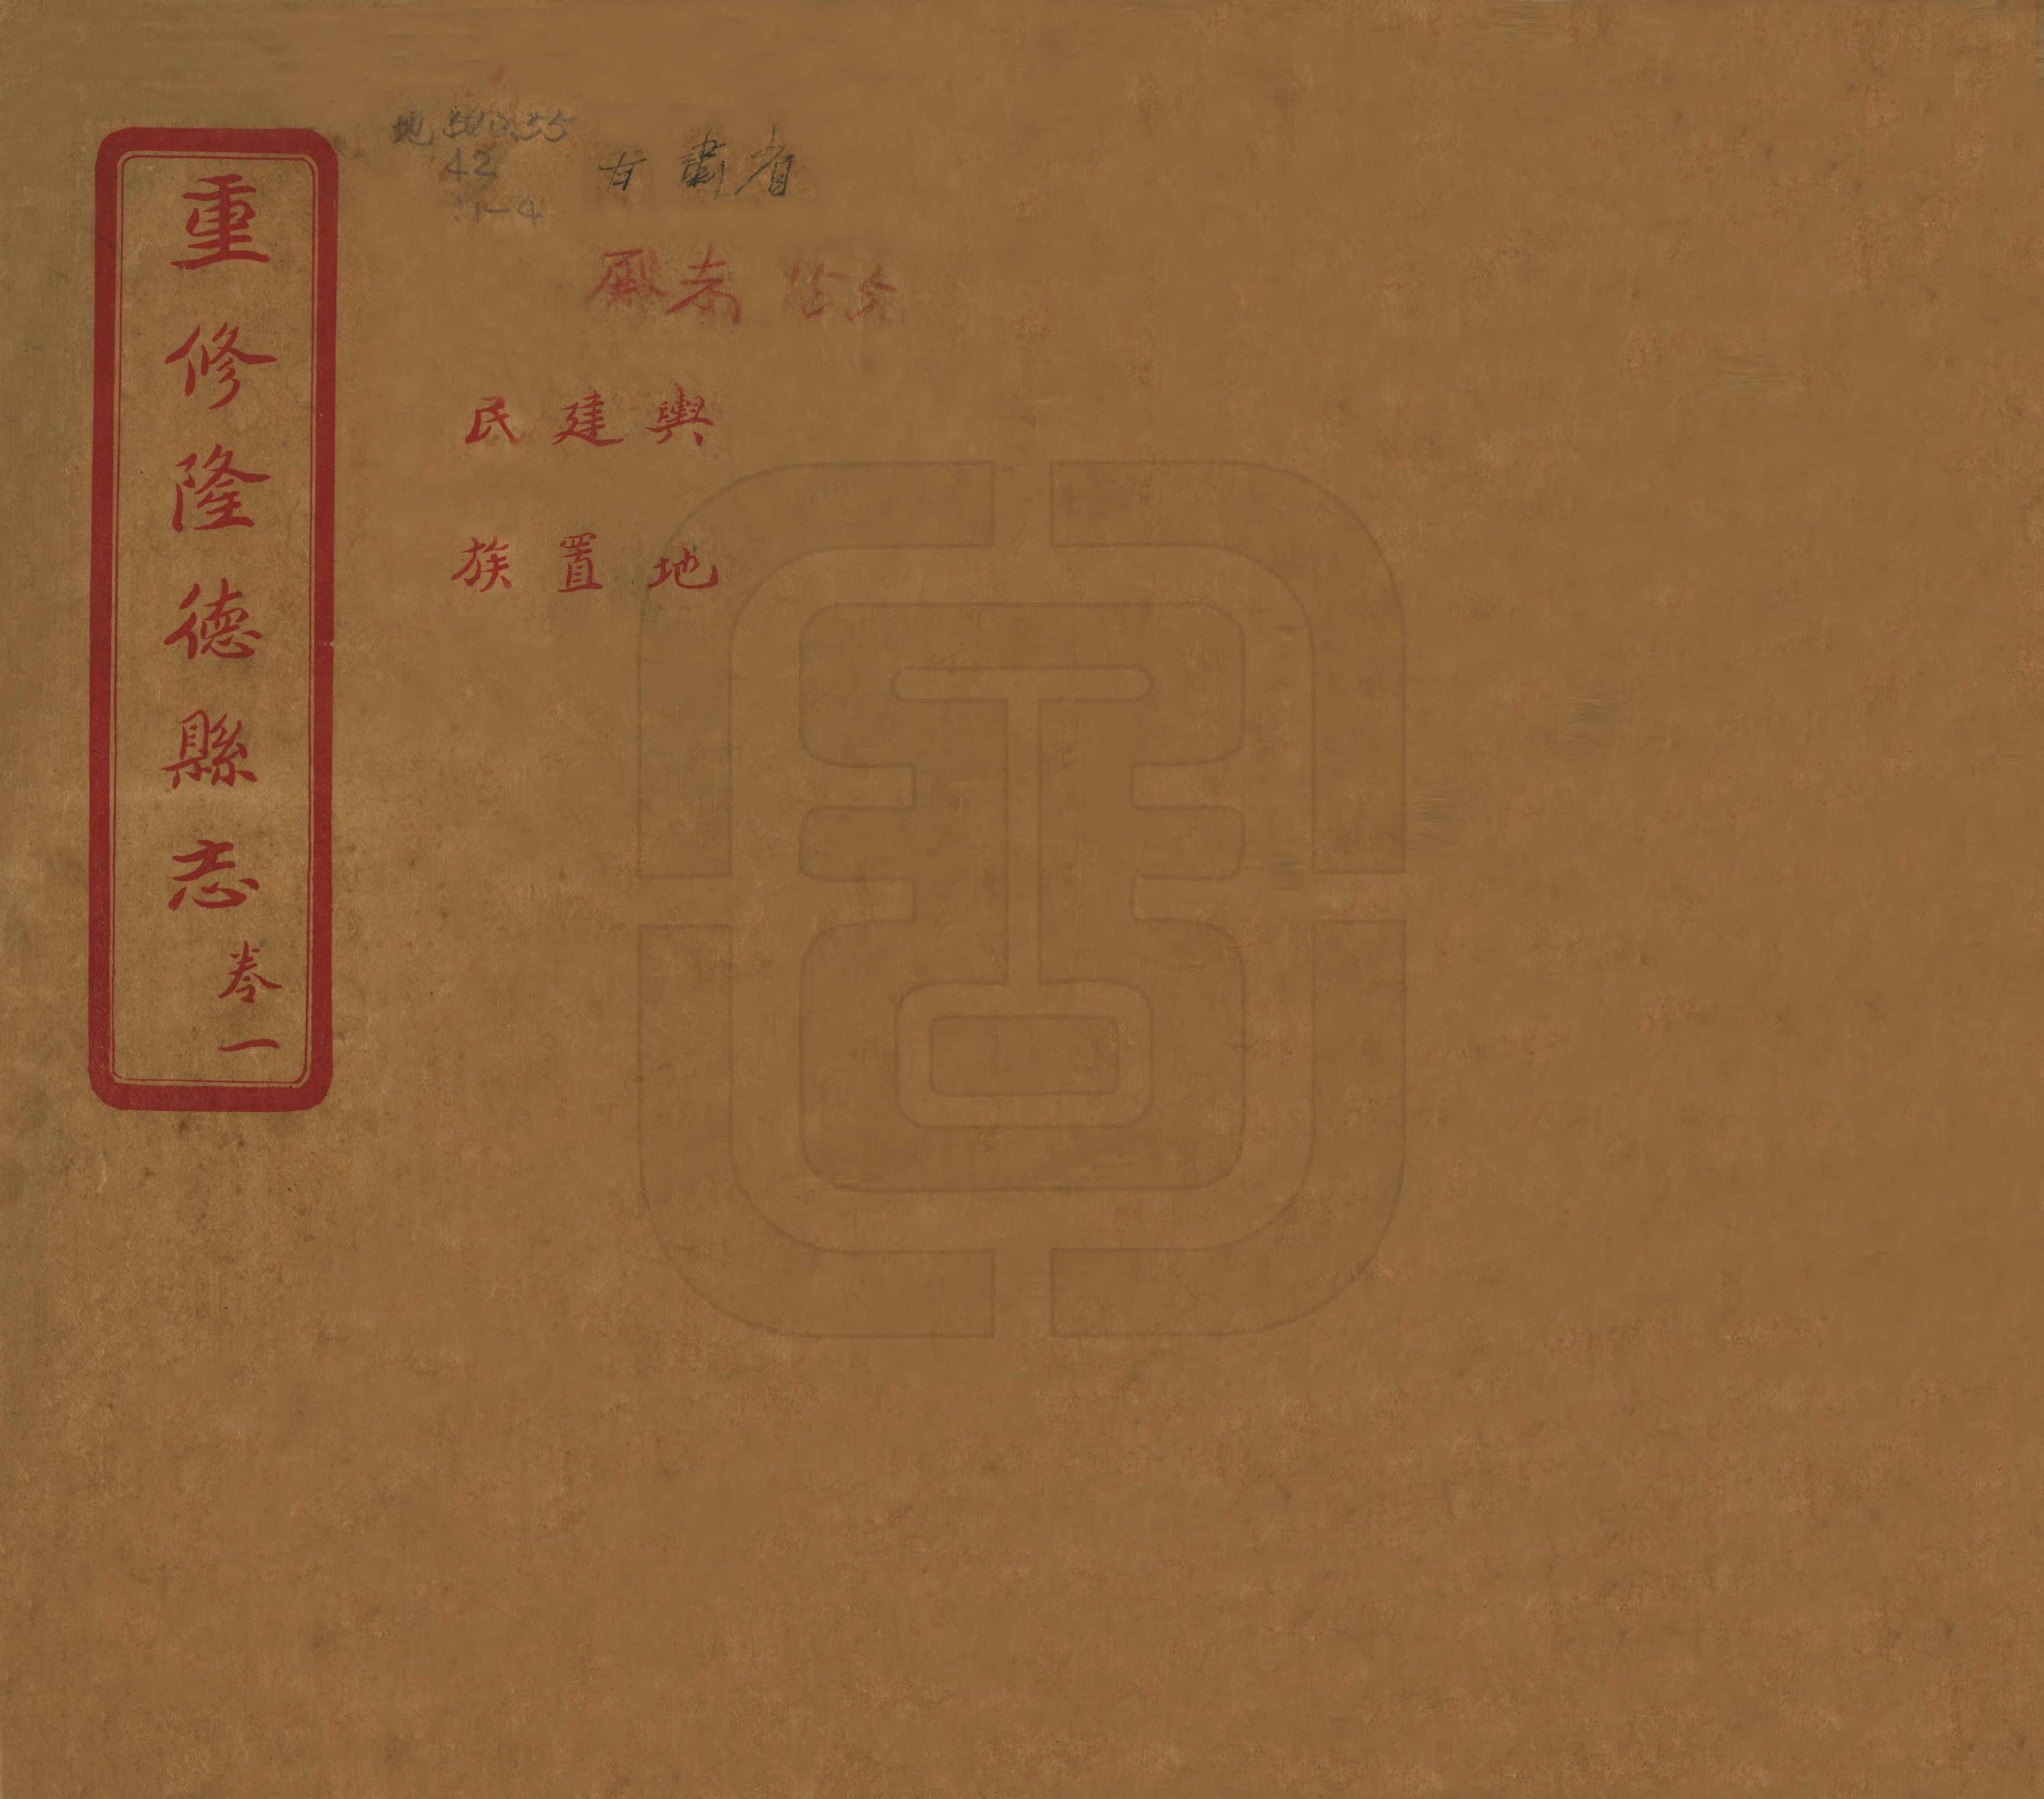 重修隆德縣志 卷一
地 510.55
42
:1-4
甘肅省
155
輿地
建置
民族